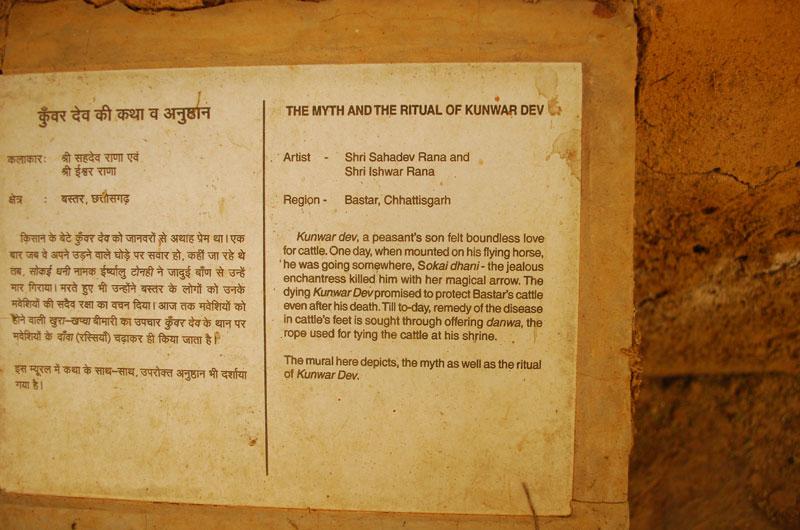 कुँवर देव की कथा व अनुष्ठान
कलाकार: श्री सहदेव राणा एवं
श्री ईश्वर राणा
क्षेत्र : बस्तर, छत्तीसगढ़
किसान के बेटे कुँवर देव को जानवरों से अथाह प्रेम था। एक
बार जब वे अपने उड़ने वाले घोड़े पर सवार हो, कहीं जा रहे थे
तब, सोकई धनी नामक ईर्ष्यालु टोनही ने जादुई बाँण से उन्हें
मार गिराया। मरते हुए भी उन्होंने बस्तर के लोगों को उनके
मवेशियों की सदैव रक्षा का वचन दिया। आज तक मवेशियों को
होने वाली खुरा-खप्चा बीमारी का उपचार कुँवर देव के थान पर
मवेशियों के दाँवा (रस्सियाँ) चढ़ाकर ही किया जाता है।
इस म्यूरल में कथा के साथ-साथ, उपरोक्त अनुष्ठान भी दर्शाया
गया है।
THE MYTH AND THE RITUAL OF KUNWAR DEV
Artist - Shri Sahadev Rana and
Shri Ishwar Rana
Region - Bastar, Chhattisgarh
Kunwar dev, a peasant's son felt boundless love
for cattle. One day, when mounted on his flying horse,
he was going somewhere, Sokai dhani - the jealous
enchantress killed him with her magical arrow. The
dying Kunwar Dev promised to protect Bastar's cattle
even after his death. Till to-day, remedy of the disease
in cattle's feet is sought through offering danwa, the
rope used for tying the cattle at his shrine.
The mural here depicts, the myth as well as the ritual
of Kunwar Dev.